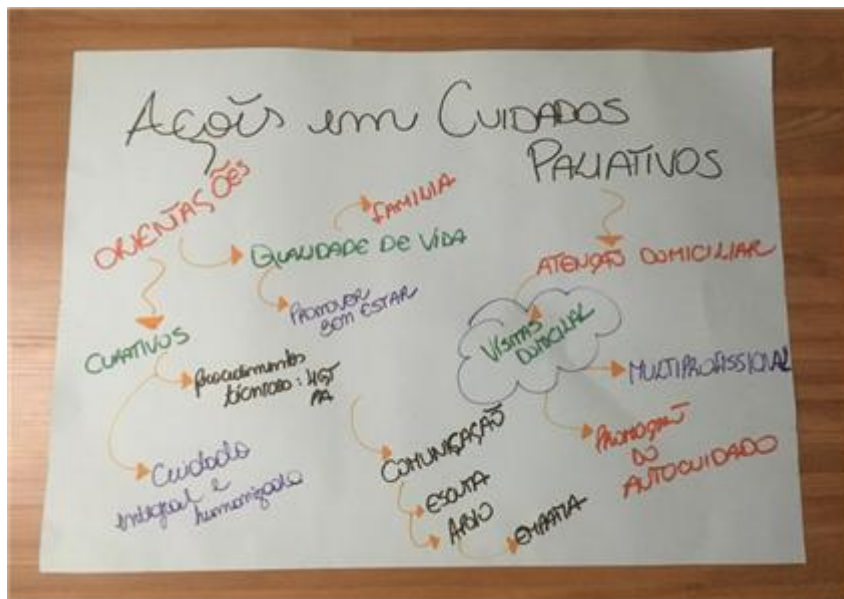 Ações em CUIDADOS
PALIATIVOS
ORIENTAÇÕES
FAMILIA
QUALIDADE DE VIDA
PROMOVER
BEM ESTAR
CURATIVOS
Procedimentos
técnicos: HGT
PA
Cuidado
integral e
humanizado
COMUNICAÇÃO
ESCUTA
APOIO
EMPATIA
ATENÇÃO DOMICILIAR
VISITAS
DOMICILIAR
MULTIPROFISSIONAL
PROMOÇÃO
DO
AUTOCUIDADO